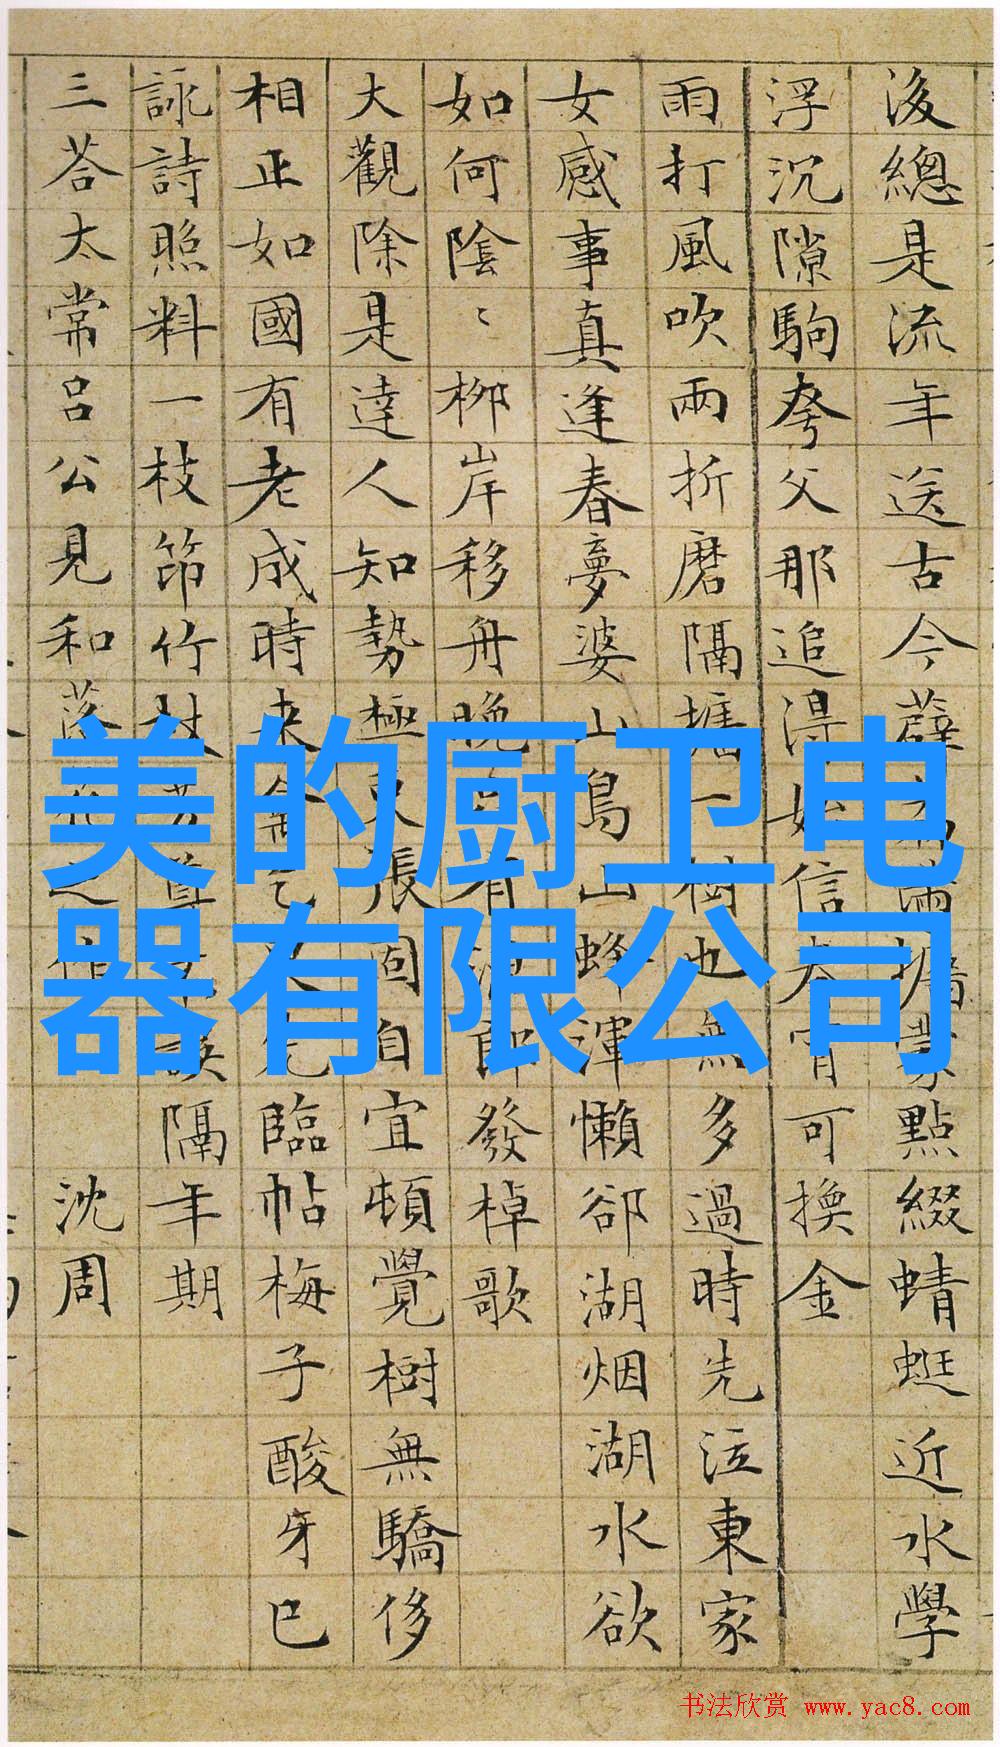 後總是流年送古今薜點綴蜻蜓近水學
浮沉隙駒夸父那追得信可換金
雨打風吹兩折磨隔墻一樹也無多過時先泣東家
女感事真逢春夢婆山鳥山蜂渾懶郤湖烟湖水欲
如何陰〻柳岸移舟晚有郎發棹歌
大觀除是達人知勢極更張固自宜頓覺樹無驕侈
相正如國有老成時來臨帖梅子酸牙已
詠詩照料一枝笻竹杖誤隔年期
三荅太常呂公見和落花之作 沈周
美的厨卫电
器有限公司
书法欣赏 www.yac8.com